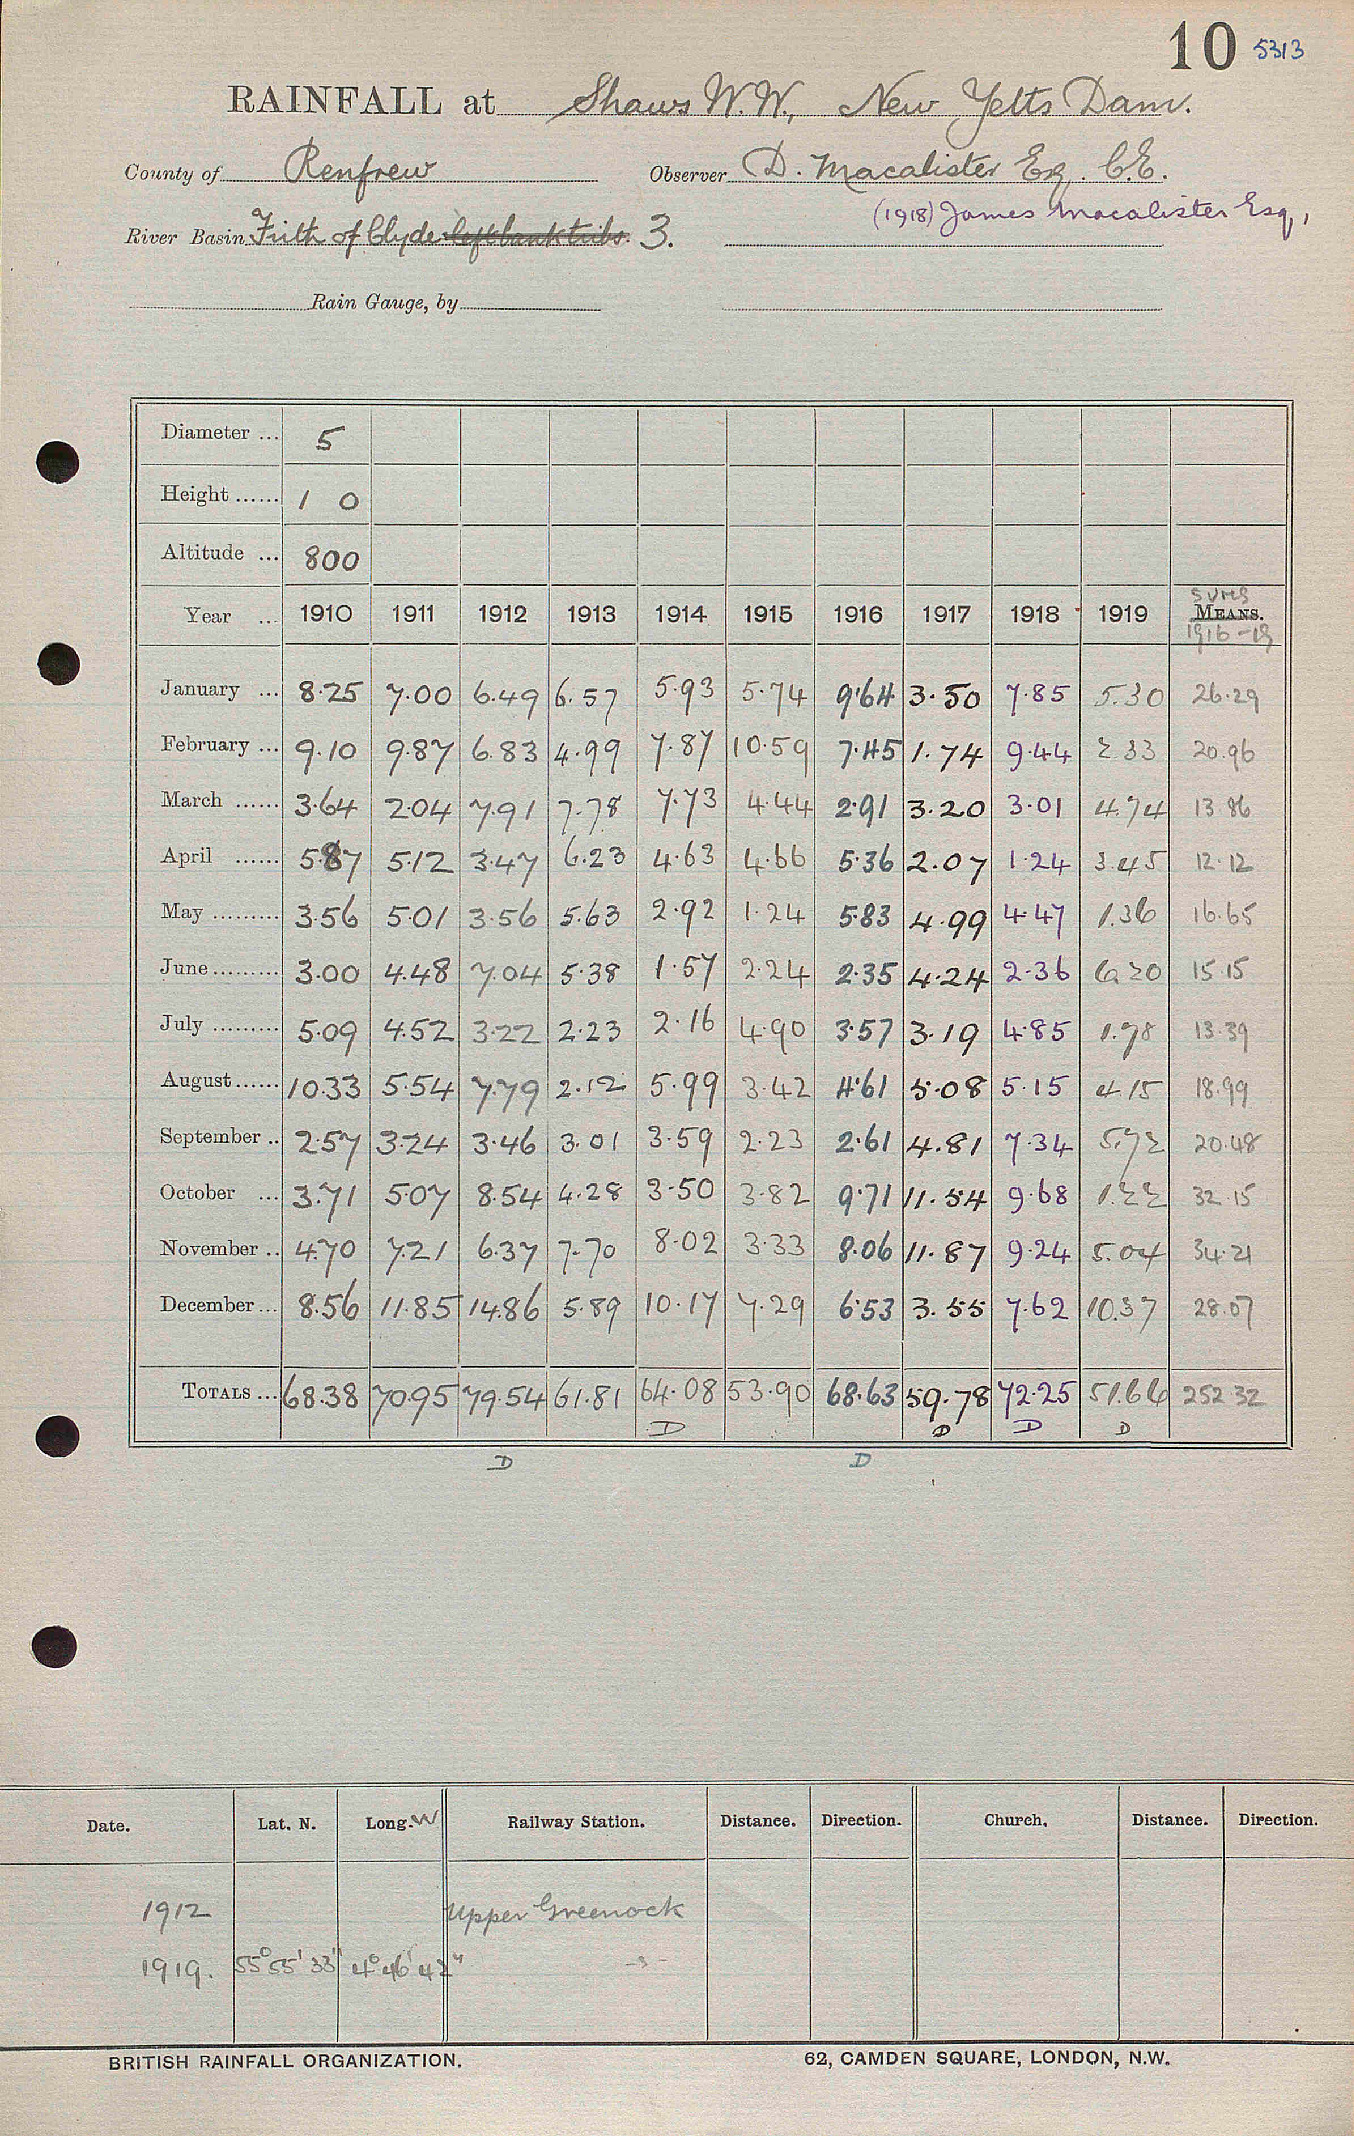 10 5313
RAINFALL at Shaws W.W., New Yetts Dam.
County of Renfrew Observer D. Macalister Esq. C.E.
(1918) James Macalister Esq,
River Basin Frith of Clyde left bank tribs. 3.
Rain Gauge, by
Diameter ... 5
Height ...... 1 0
Altitude ... 800
Year ... 1910 1911 1912 1913 1914 1915 1916 1917 1918 1919 SUMS MEANS. 1916-19
January ... 8.25 7.00 6.49 6.57 5.93 5.74 9.64 3.50 7.85 5.30 26.29
February ... 9.10 9.87 6.83 4.99 7.87 10.59 7.45 1.74 9.44 2.33 20.96
March ...... 3.64 2.04 7.91 7.78 7.73 4.44 2.91 3.20 3.01 4.74 13.86
April ...... 5.87 5.12 3.47 6.23 4.63 4.66 5.36 2.07 1.24 3.45 12.12
May ......... 3.56 5.01 3.56 5.63 2.92 1.24 5.83 4.99 4.47 1.36 16.65
June ......... 3.00 4.48 7.04 5.38 1.57 2.24 2.35 4.24 2.36 6.20 15.15
July ......... 5.09 4.52 3.22 2.23 2.16 4.90 3.57 3.19 4.85 1.78 13.39
August ...... 10.33 5.54 7.79 2.12 5.99 3.42 4.61 5.08 5.15 4.15 18.99
September .. 2.57 3.24 3.46 3.01 3.59 2.23 2.61 4.81 7.34 5.72 20.48
October ... 3.71 5.07 8.54 4.28 3.50 3.82 9.71 11.54 9.68 1.22 32.15
November .. 4.70 7.21 6.37 7.70 8.02 3.33 8.06 11.87 9.24 5.04 34.21
December ... 8.56 11.85 14.86 5.89 10.17 7.29 6.53 3.55 7.62 10.37 28.07
TOTALS ... 68.38 70.95 79.54 61.81 64.08 53.90 68.63 59.78 72.25 51.66 252.32
D D D D
D D
Date. Lat. N. Long. W Railway Station. Distance. Direction. Church. Distance. Direction.
1912 Upper Greenock
1919. 55° 55' 33" 4° 46' 42" -3-
BRITISH RAINFALL ORGANIZATION. 62, CAMDEN SQUARE, LONDON, N.W.